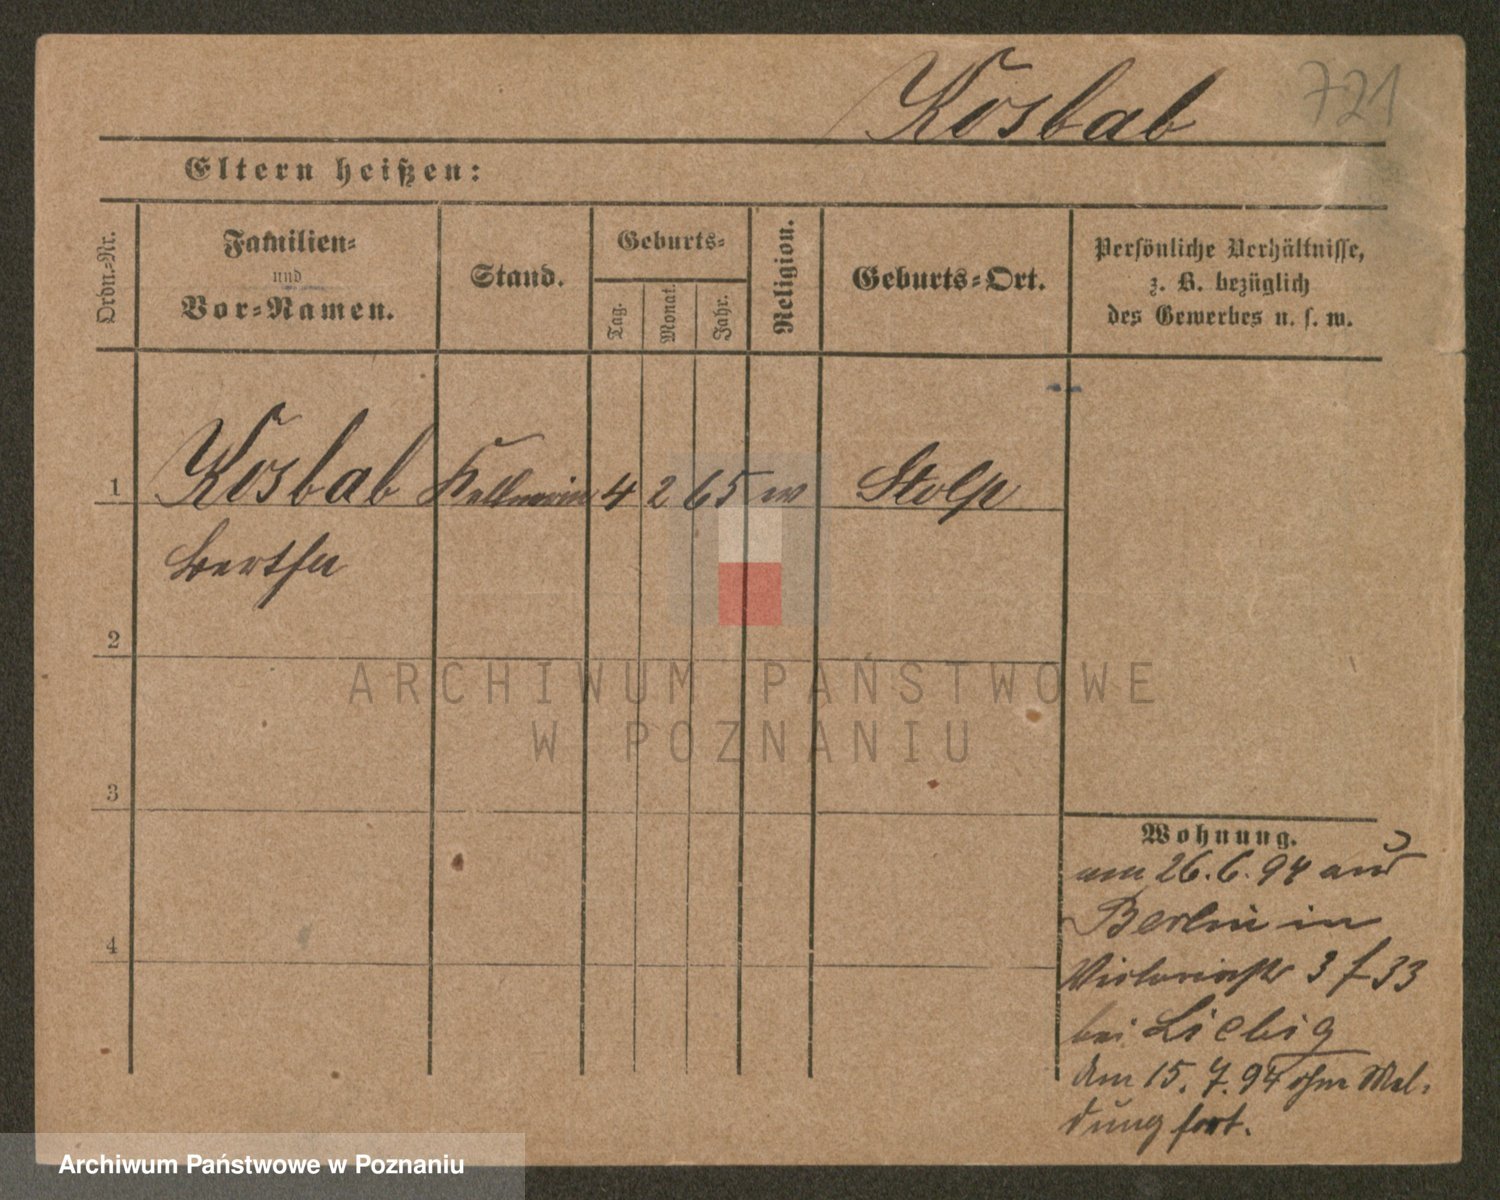 Kosbab 721
Eltern heißen:
Ordn.-Nr.
Familien-
und
Vor-Namen.
Stand.
Geburts-
Tag.
Monat.
Jahr.
Religion.
Geburts-Ort.
Persönliche Verhältnisse,
z. B. bezüglich
des Gewerbes u. s. w.
1 Kosbab Kellnerin 4 2 65 Stolp
Bertha
2
3
4
ARCHIWUM PAŃSTWOWE
W POZNANIU
Wohnung.
am 26.6.94 aus
Berlin in
Victoriastr 3 f 33
bei Liebig
Am 15.7.94 ohne Mel-
dung fort.
Archiwum Państwowe w Poznaniu